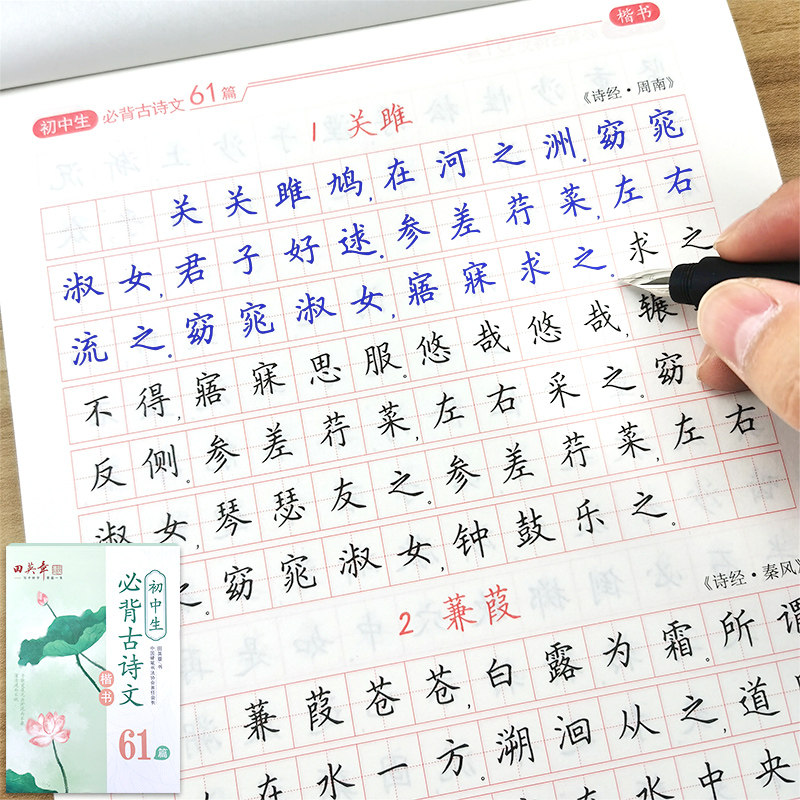 楷书
初中生 必背古诗文61篇
《诗经·周南》
1 关雎
关关雎鸠,在河之洲。窈窕
淑女,君子好逑。参差荇菜,左右
流之。窈窕淑女,寤寐求之。求之
不得,寤寐思服。悠哉悠哉,辗
反侧。参差荇菜,左右采之。窈
淑女,琴瑟友之。参差荇菜,左右
之。窈窕淑女,钟鼓乐之。
《诗经·秦风》
2 蒹葭
蒹葭苍苍,白露为霜。所谓
在水一方。溯洄从之,道
在水中央
田英章
初中生
必背古诗文
楷书
61篇